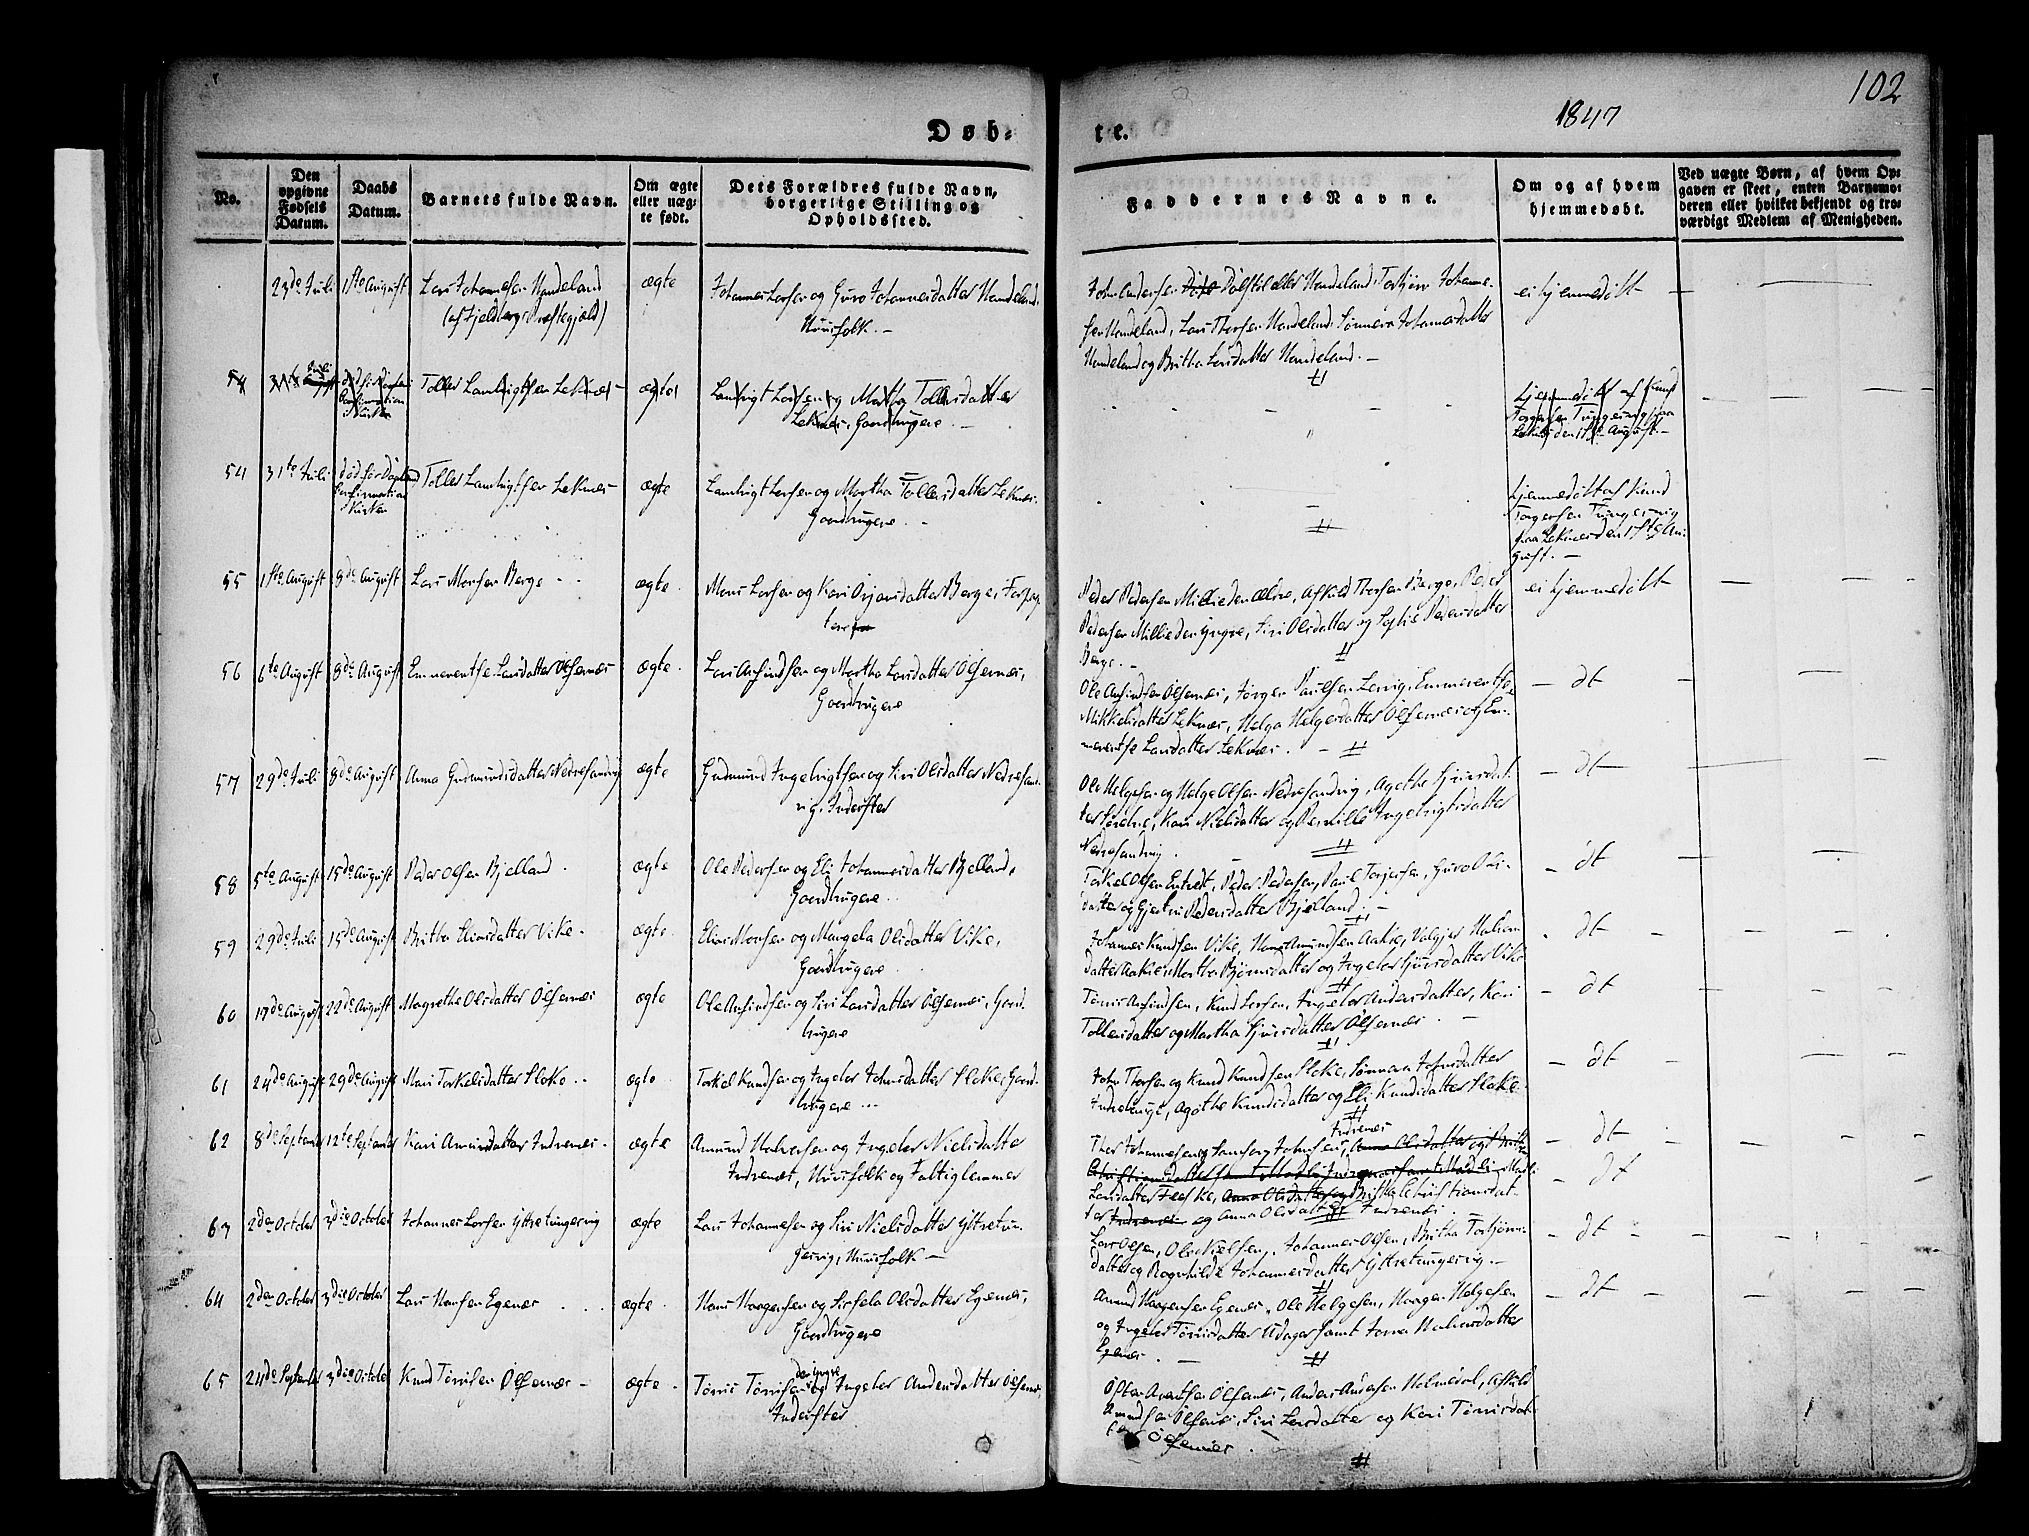 102
1847
Døb-
te.
No.
Den opgivne Fødsels Datum.
Daabs Datum.
Barnets fulde Navn.
Om ægte eller uægte født.
Dets Forældres fulde Navn, borgerlige Stilling og Opholdssted.
Faddernes Navne.
Om og af hvem hjemmedøbt.
Ved uægte Børn, af hvem Opgaven er skeet, enten Barnemoderen eller hvilket bekjendt og troværdigt Medlem af Menigheden.
23de Juli 1ste August Lars Johannesen Handeland ægte Johannes Larsen og Guro Johannesdatter Handeland,
(af Fjeldbergs Præstegjæld) Huusfolk. -
John Andersen Dølstøl eller Handeland, Torbjørn Johanne- ei hjemmedøbt
sen Handeland, Lars Thorsen Handeland, Sønneva Johannesdatter
Handeland og Britha Larsdatter Handeland. -
54 31te Juli død før Daabens Confirmation i Kirken Tolles Lambrigtsen Leknes ægte Lambrigt Larsen og Martha Tollesdatter
Leknes, Gaardbrugere. -
hjemmedøbt af Knud
Torgersen Tungesvig paa
Leknes den 1ste August. -
54 31te Juli død før Daabens Confirmation i Kirken Tolles Lambrigtsen Leknes ægte Lambrigt Larsen og Martha Tollesdatter Leknes,
Gaardbrugere. -
hjemmedøbt af Knud
Torgersen Tungesvig
paa Leknes den 1ste Au-
gust. -
55 1ste August 8de August Lars Monsen Berge ægte Mons Larsen og Kari Orjansdatter Berge, Forpag-
tere
Peder Pedersen Millie den ældre, Afskild Thorsen Berge, Peder ei hjemmedøbt
Pedersen Millie den yngre, Siri Olsdatter og Sophie Pedersdatter
Berge. -
56 6te August 8de August Emmerentse Larsdatter Ølfernes ægte Lars Arfindsen og Martha Larsdatter Ølfernes,
Gaardbrugere
Ole Arfindsen Ølfernes, Jørgen Paulsen Lervig, Emmerentse - dt -
Mikkelsdatter Leknes, Helga Helgesdatter Ølfernes og Em-
merentse Larsdatter Leknes. -
57 29de Juli 8de August Anna Gudmundsdatter Nedresandvig ægte Gudmund Ingebrigtsen og Siri Olsdatter Nedresand-
vig, Inderster
Ole Helgesen og Helge Olsen Nedresandvig, Agathe Sjursdat- - dt -
ter, Kari Nielsdatter og Pernille Ingebrigtsdatter
Nedresandvig.
58 5te August 15de August Peder Olsen Bjelland ægte Ole Pedersen og Eli Johannesdatter Bjelland,
Gaardbrugere
Torkel Olsen, Peder Pedersen, Paul Torjersen, Guro Ols- - dt -
datter og Gjertrui Pedersdatter Bjelland. -
59 29de Juli 15de August Britha Eliasdatter Vike ægte Elias Monsen og Mangela Olsdatter Vike,
Gaardbrugere
Johannes Knudsen Vike, Hans Amundsen Aakre, Valgjer Halvors- dt -
datter Aakre, Martha Bjørnsdatter og Ingebor Sjursdatter Vike
60 17de August 22de August Magrethe Olsdatter Ølfernes ægte Ole Arfindsen og Siri Larsdatter Ølfernes, Gaard-
brugere
Tønnis Arfindsen, Knud Larsen, Ingebor Andersdatter, Kari - dt -
Tollesdatter og Martha Sjursdatter Ølfernes. -
61 24de August 29de August Mari Torkelsdatter Floke ægte Torkel Knudsen og Ingebor Johnsdatter Floke, Gaard-
brugere
John Thorsen og Knud Knudsen Floke, Sønneva Johnsdatter - dt -
Agathe Knudsdatter og Eli Knudsdatter Floke.
62 8de September 12te September Kari Amundsdatter Indrenes ægte Amund Halvorsen og Ingebor Nielsdatter
Indrenes, Huusfolk og Fattiglemmer
Thor Johannesen og Johnsen Indrenes, - dt -
Madli
Larsdatter, Britha Christiansdat-
ter og Anna Olsdatter Indrenes.
63 2den October 3die October Johannes Larsen Ytretungesvig ægte Lars Johannesen og Siri Nielsdatter Ytretun-
gesvig, Huusfolk -
Lars Olsen, Ole Nielsen, Johannes Olsen, Britha Torbjørns- - dt -
datter og Ragnhilde Johannesdatter Ytretungesvig. -
64 2den October 3die October Lars Hansen Egenes ægte Hans Haagensen og Sirsela Olsdatter Egenes,
Gaardbrugere
Amund Haagensen Egenes, Ole Helgesen, Haagen Helgesen - dt -
og Ingebor Tønnisdatter Udager samt Halvorsdatter
Egenes. -
65 24de September 3die October Knud Tønnisen Ølfernes - ægte Tønnis Tønnisen den yngre og Ingebor Andersdatter Ølfernes,
Inderster
Ølfernes, Anders Andersen Holmedal, Afskild
Amundsen Ølfernes, Siri Larsdatter og Kari Tønnisdat-
ter Ølfernes.